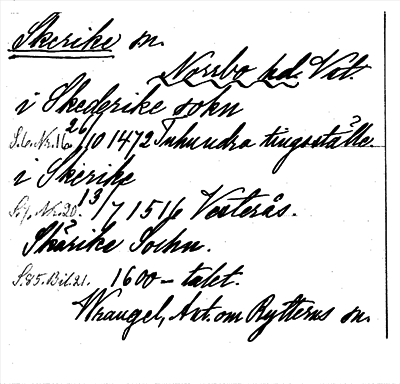 Skerike sn.
Norrbo hd. Vstl.
i Skederike sokn
S.6. Nr. 16. 26/10 1472 Tuhundra tingsställe.
i Skerike
Nr. 20. 13/7 1516 Vesterås.
Skärike Sochn.
S. 85. Bil. 21. 1600-talet.
Wrangel, Ant. om Rytterns sn.